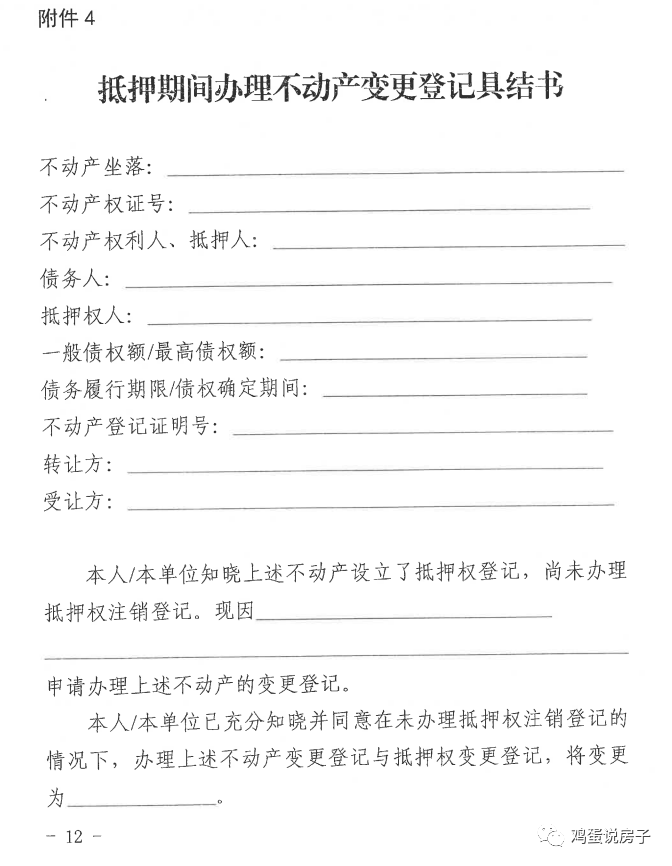 附件 4
抵押期间办理不动产变更登记具结书
不动产坐落：
不动产权证号：
不动产权利人、抵押人：
债务人：
抵押权人：
一般债权额/最高债权额：
债务履行期限/债权确定期间：
不动产登记证明号：
转让方：
受让方：
本人/本单位知晓上述不动产设立了抵押权登记，尚未办理
抵押权注销登记。现因
申请办理上述不动产的变更登记。
本人/本单位已充分知晓并同意在未办理抵押权注销登记的
情况下，办理上述不动产变更登记与抵押权变更登记，将变更
为　　　　　。
- 12 -
鸡蛋说房子